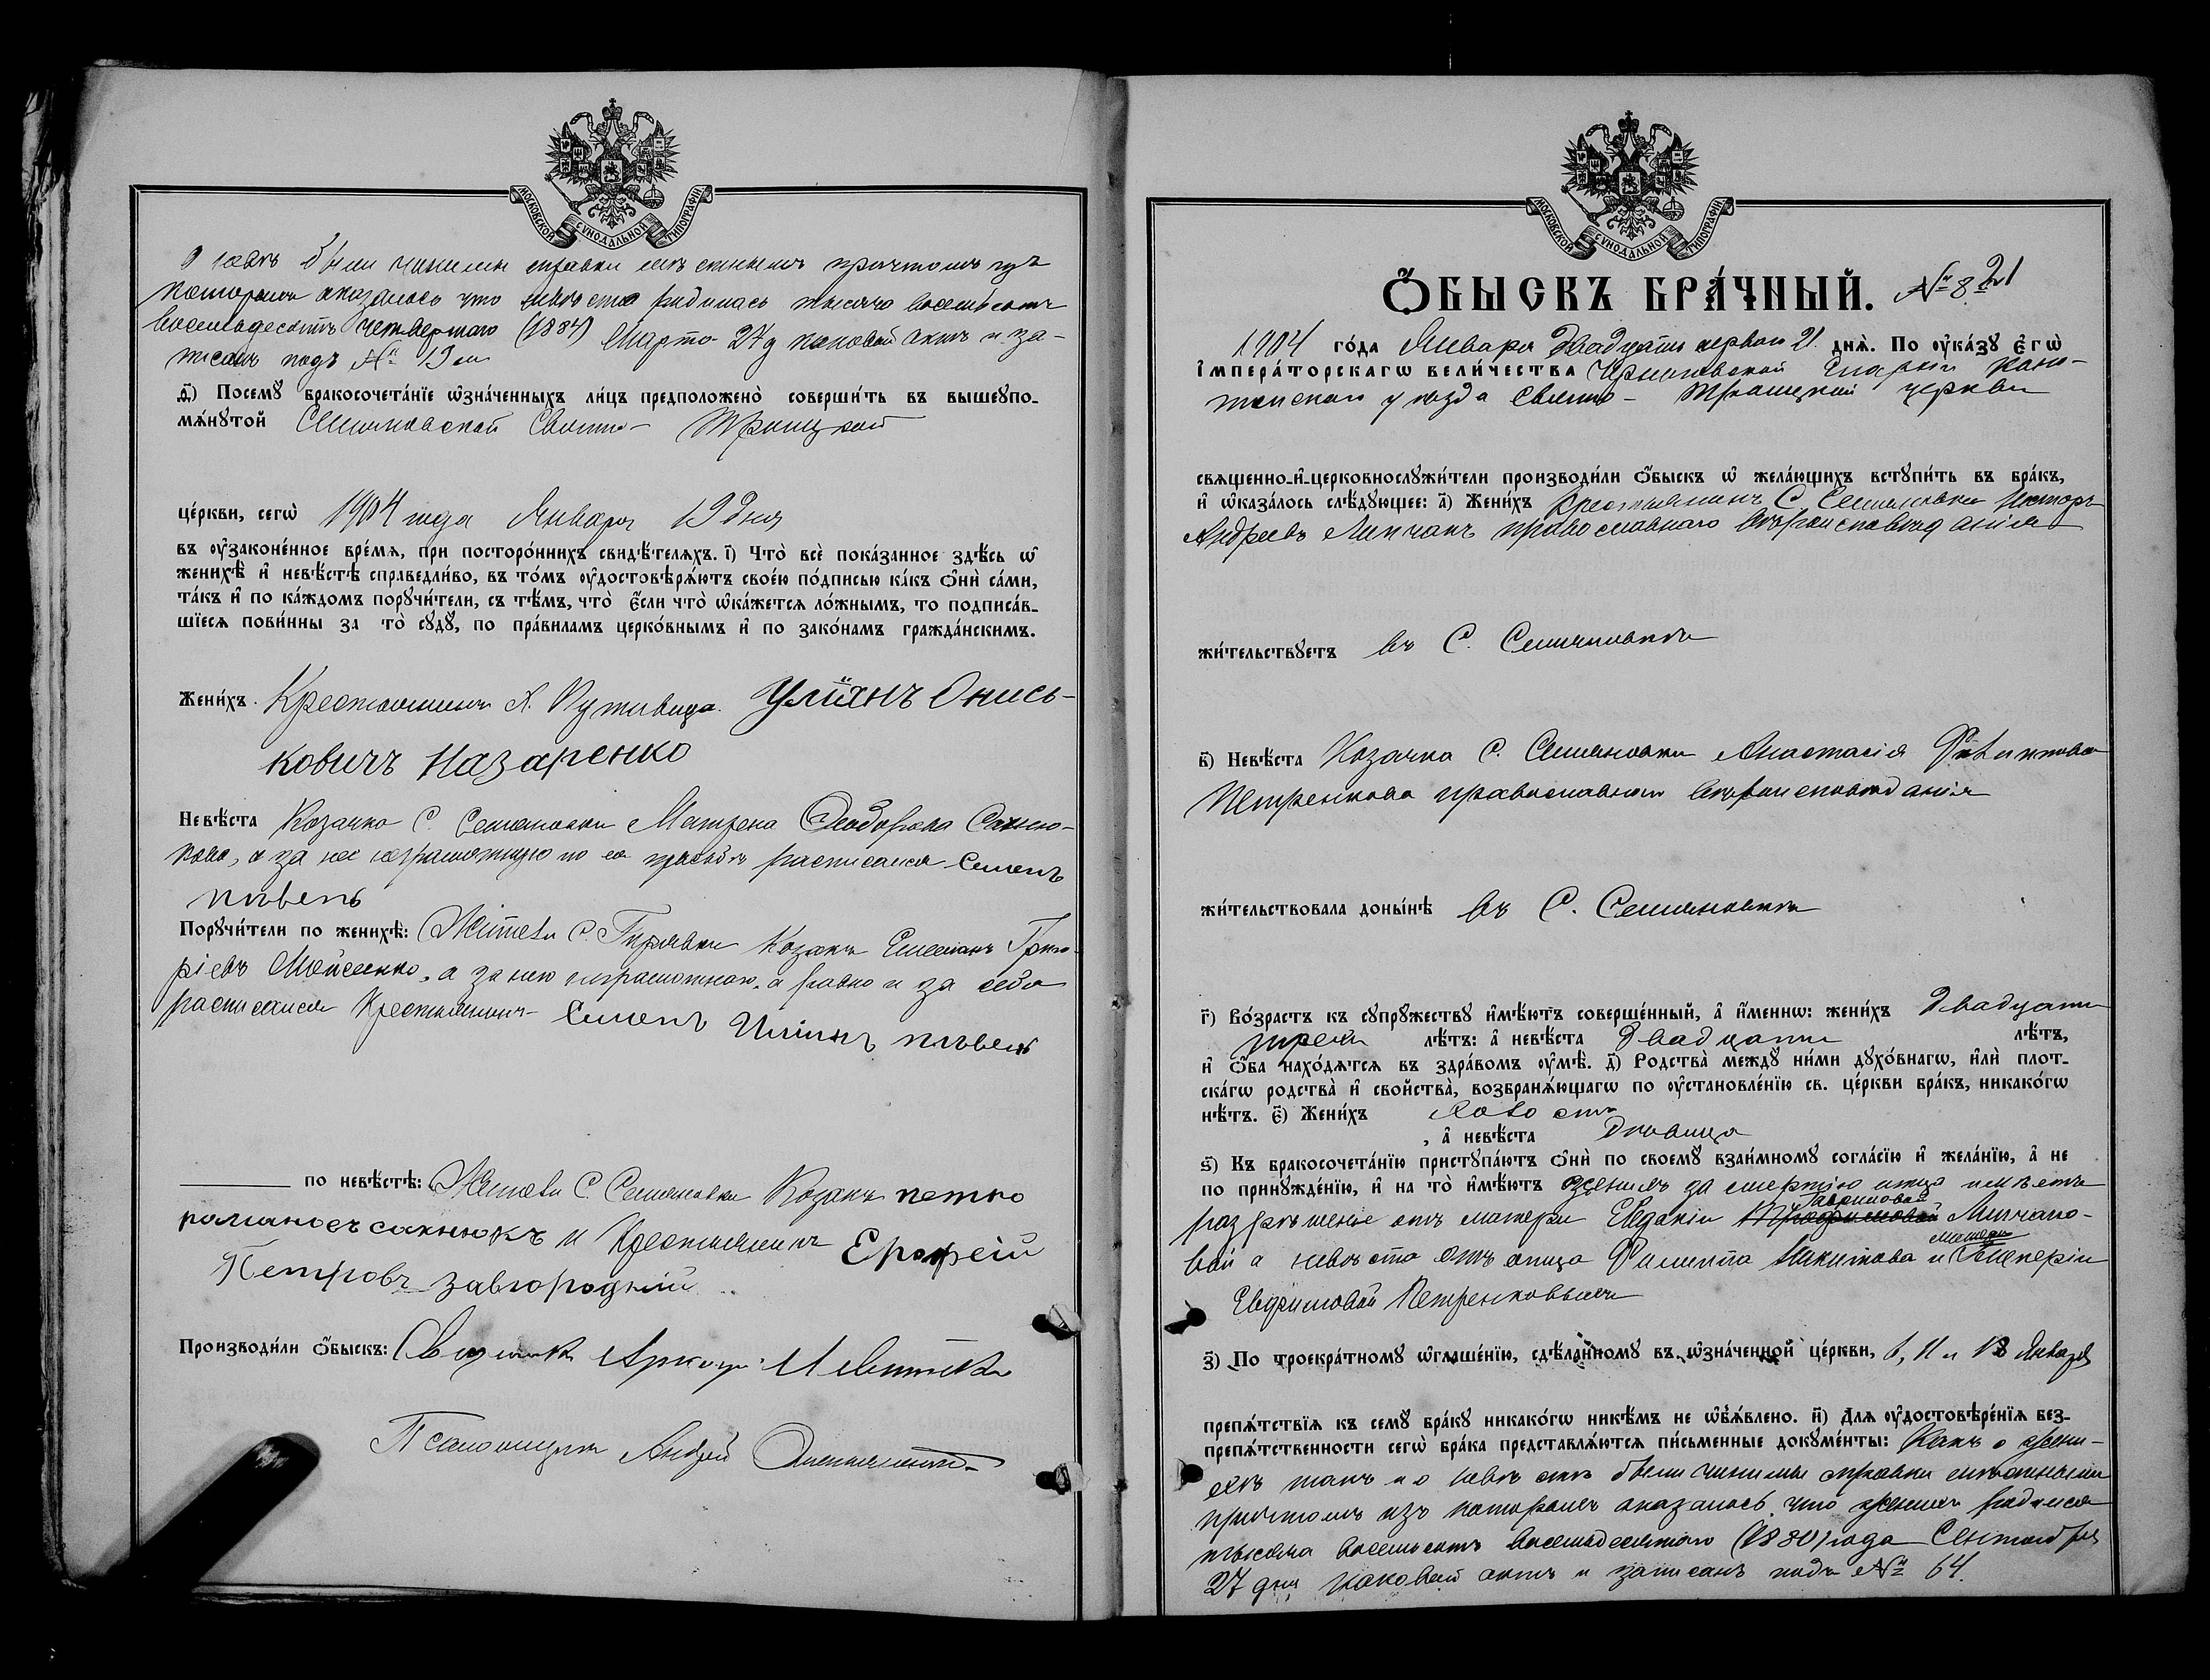 МОСКОВСКОЙ СѴНОДАЛЬНОЙ ТИПОГРАФІИ
были чинимы справки мѣстнымъ причтомъ изъ
которыхъ оказалось что невѣста родилась тысяча восемьсотъ
восемьдесятъ четвертаго (1884) Марта 27 д каковой актъ и за-
писанъ подъ № 19 мъ
д҃) Посемꙋ бракосочета́нїе ѡ҆зна́ченныхъ ли́цъ предположено̀ соверши́ть въ вышеꙋпо-
мѧ́нꙋтой Семяновской Свято- Троицкой
це́ркви, сегѡ̀ 1904 года Января 19 дня
въ ᲂу҆законе́нное вре́мѧ, при посторо́ннихъ свидѣ́телѧхъ. і҃) Что̀ всѐ пока́занное здѣ́сь ѡ҆
женихѣ̀ и҆ невѣ́стѣ справедли́во, въ то́мъ ᲂу҆достовѣрѧ́ютъ свое́ю по́дписью ка́къ ѻ҆нѝ са́ми,
та́къ и҆ по ка́ждомъ порꙋчи́тели, съ тѣ́мъ, что̀ є҆́сли что̀ ѡ҆ка́жетсѧ ло́жнымъ, то подписа́в-
шїесѧ пови́нны за то̀ сꙋдꙋ̀, по пра́виламъ церко́внымъ и҆ по зако́намъ гражда́нскимъ.
Жени́хъ Крестьянинъ Х. Путивца Улїянъ Онись-
ковичъ Назаренко
Невѣ́ста Козачка С. Семяновки Матрена Ѳеодорова Сахню-
кова, а за нее неграмотную по ея просьбѣ расписался Семенъ
пивень
Порꙋчи́тели по женихѣ̀: Жители С. Гирявки Козакъ Емельянъ Григо-
ріевъ Мойсеенко, а за него неграмотнаго, а равно и за себя
расписался Крестьянинъ Семенъ Илїинъ пивень
по невѣ́стѣ: Жители С. Семяновки Козакъ петко
романовъ сахнюкъ и Крестьянинъ Ерофей
Петровъ завгородній
Производи́ли ѻ҆́быскъ: Священникъ Левитскій
Псаломщикъ Андрей
МОСКОВСКОЙ СѴНОДАЛЬНОЙ ТИПОГРАФІИ
Ѻ҆́БЫСКЪ БРА́ЧНЫЙ. №
1904 го́да Января двадцать перваго 21 днѧ̀. По ᲂу҆ка́зꙋ є҆гѡ̀
і҆мпера́торскагѡ вели́чества Черниговской Епархіи Коно-
топскаго уѣзда Свято- Троицкой церкви
свѧщенно-и҆-церковнослꙋжи́тели производи́ли ѻ҆́быскъ ѡ҆ жела́ющихъ встꙋпи́ть въ бра́къ,
и҆ ѡ҆каза́лось слѣ́дꙋющее: а҃) Жени́хъ Крестьянинъ С Семяновки Несторъ
Андреевъ Липчанъ православнаго вѣроисповѣданія
жи́тельствꙋетъ въ С. Семяновкѣ
в҃) Невѣ́ста Козачка С. Семяновки Анастасія Филиппова
Петренкова православнаго вѣроисповѣданія
жи́тельствовала доны́нѣ въ С. Семяновкѣ
г҃) Во́зрастъ къ сꙋпрꙋ́жествꙋ и҆мѣ́ютъ соверше́нный, а҆ и҆́меннѡ: жени́хъ двадцати
трехъ лѣ́тъ: а҆ невѣ́ста двадцати лѣ́тъ,
и҆ ѻ҆́ба нахо́дѧтсѧ въ здра́вомъ ᲂу҆мѣ̀. д҃) Родства̀ междꙋ ни́ми дꙋхо́внагѡ, и҆лѝ плот-
ска́гѡ родства̀ и҆ свойства̀, возбранѧ́ющагѡ по ᲂу҆становле́нїю св. це́ркви бра́къ, никако́гѡ
нѣ́тъ. є҃) Жени́хъ холостъ
, а҆ невѣ́ста дѣвица
ѕ҃) Къ бракосочета́нїю пристꙋпа́ютъ ѻ҆нѝ по своемꙋ̀ взаи́мномꙋ согла́сїю и҆ жела́нїю, а҆ не
по принꙋжде́нїю, и҆ на то̀ и҆мѣ́ютъ женихъ за смертію отца имѣетъ
разрѣшеніе отъ матери Евдокіи Гавриловой Липчано-
вой а невѣста отъ отца Филиппа Никитова и матери Гликеріи
Евфимовой Петренковыхъ
з҃) По троекра́тномꙋ ѡ҆глаше́нїю, сдѣ́ланномꙋ въ ѡ҆зна́ченной це́ркви, 6, 11 и 18 Января
препѧ́тствїѧ къ семꙋ̀ бра́кꙋ никако́гѡ никѣ́мъ не ѡ҆бъѧ́влено. и҃) Длѧ ᲂу҆достовѣре́нїѧ без-
препѧ́тственности сегѡ̀ бра́ка представлѧ́ютсѧ пи́сьменные докꙋме́нты: Какъ о жени-
хѣ такъ и о невѣстѣ были чинимы справки мѣстнымъ
причтомъ изъ которыхъ оказалось, что женихъ родился
тысяча восемьсотъ восемьдесятаго (1880) года Сентября
27 дня каковой актъ и записанъ подъ № 64.